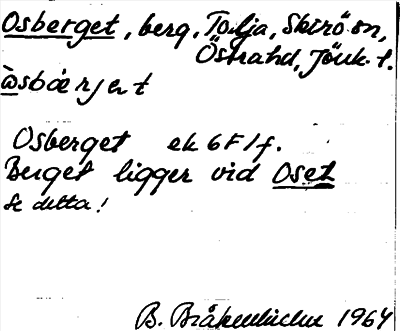 Osberget, berg, Tolja, Skirö sn,
Östra hd, Jönk. l.
òsbærjet
Osberget ek 6F1f.
Berget ligger vid Oset
Se detta!
B. 1964